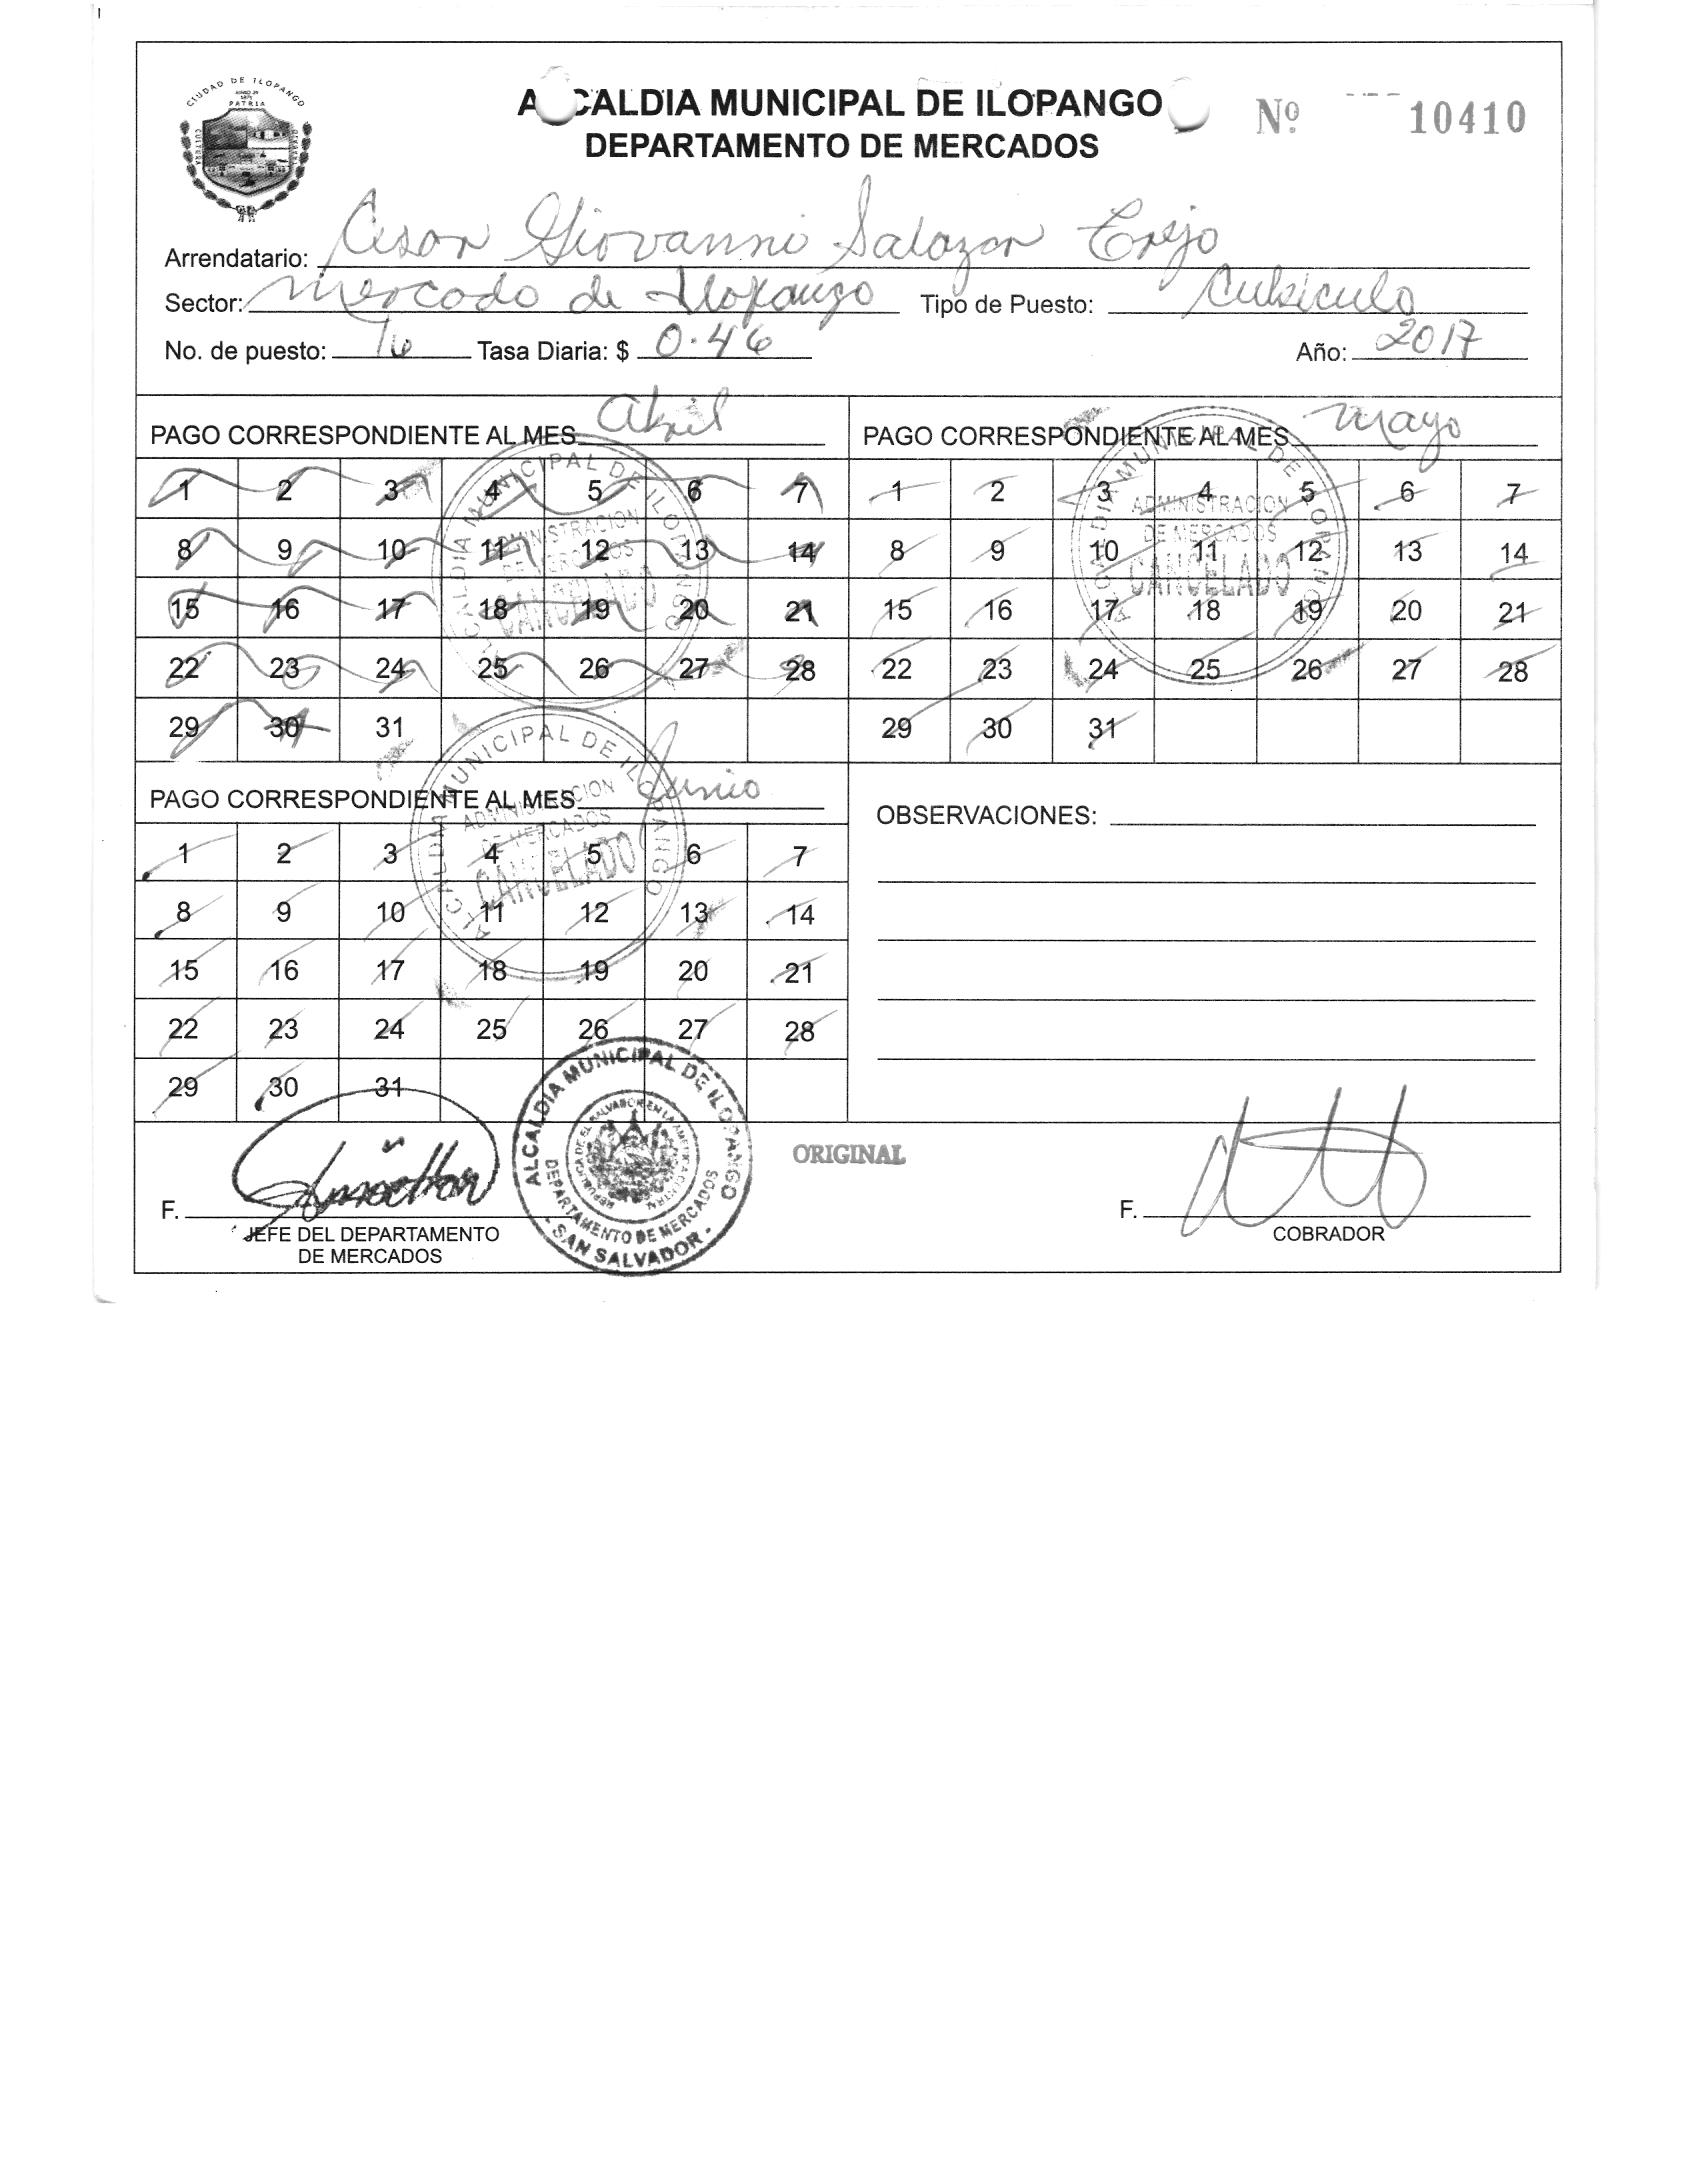 CIUDAD DE ILOPANGO
PATRIA
CULTURA
ALCALDIA MUNICIPAL DE ILOPANGO
DEPARTAMENTO DE MERCADOS
Nº 10410
Arrendatario: Cesar Giovanni Salazar Trejo
Sector: Mercado de Ilopango Tipo de Puesto: Cubiculo
No. de puesto: 16 Tasa Diaria: $ 0.46 Año: 2017
PAGO CORRESPONDIENTE AL MES Abril
1 2 3 4 5 6 7
8 9 10 11 12 13 14
15 16 17 18 19 20 21
22 23 24 25 26 27 28
29 30 31
ALCALDIA MUNICIPAL DE ILOPANGO
ADMINISTRACION
DE MERCADOS
CANCELADO
PAGO CORRESPONDIENTE AL MES Mayo
1 2 3 4 5 6 7
8 9 10 11 12 13 14
15 16 17 18 19 20 21
22 23 24 25 26 27 28
29 30 31
ALCALDIA MUNICIPAL DE ILOPANGO
ADMINISTRACION
DE MERCADOS
CANCELADO
PAGO CORRESPONDIENTE AL MES Junio
1 2 3 4 5 6 7
8 9 10 11 12 13 14
15 16 17 18 19 20 21
22 23 24 25 26 27 28
29 30 31
ALCALDIA MUNICIPAL DE ILOPANGO
ADMINISTRACION
DE MERCADOS
CANCELADO
OBSERVACIONES:
F.
JEFE DEL DEPARTAMENTO
DE MERCADOS
ALCALDIA MUNICIPAL DE ILOPANGO
REPUBLICA DE EL SALVADOR EN LA AMERICA CENTRAL
DEPARTAMENTO DE MERCADOS
- SAN SALVADOR -
ORIGINAL
F.
COBRADOR